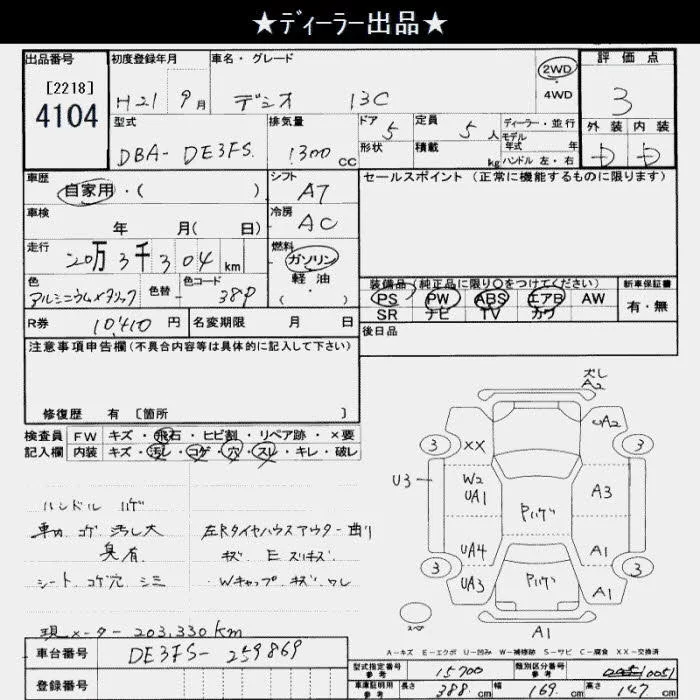 ★ディーラー出品★
出品番号
[2218]
4104
初度登録年月
H21 9月
車名・グレード
デミオ 13C
2WD
4WD
評価点
3
外装 内装
D D
型式
DBA- DE3FS
排気量
1300 CC
ドア 5
形状
定員 5 人
積載 kg
ディーラー・並行
モデル
年式 年
ハンドル 左・右
車歴
自家用・( )
シフト
A7
車検
年 月( 日)
冷房
AC
走行
20万3千304 km
燃料
ガソリン
軽油
・( )
色
アルミニウムメタリック
色替 -
色コード
38P
R券 10410 円
名変期限 月 日
セールスポイント(正常に機能するものに限ります)
装備品(純正品に限り○をつけてください)
PS PW ABS エアB AW
SR ナビ TV カワ
新車保証書
有・無
後日品
注意事項申告欄(不具合内容等は具体的に記入して下さい)
修復歴 有 [箇所 ]
検査員
記入欄
FW キズ・飛石・ヒビ割・リペア跡・×要
内装 キズ・汚レ・コゲ・穴・スレ・キレ・破レ
ハンドル ハゲ
車内 コゲ 汚レ大
臭有
シート コゲ穴 シミ
左Rタイヤハウスアウター曲り
キズ E ズリキズ
Wキャップ キズ ワレ
現メーター 203,330km
A2
UA2
3 XX 3
U3
W2
UA1
Pハゲ
A3
UA4
A1
3
UA3
Pハゲ
A1
3
スペア
A1
A-キズ E-エクボ U-凹み W-補修跡 S-サビ C-腐食 XX-交換済
車台番号 DE3FS-259869
登録番号
型式指定番号
参考
15700
類別区分番号
参考
0051
車庫証明用
参考
長さ 388 cm
幅 169 cm
高さ 147 cm